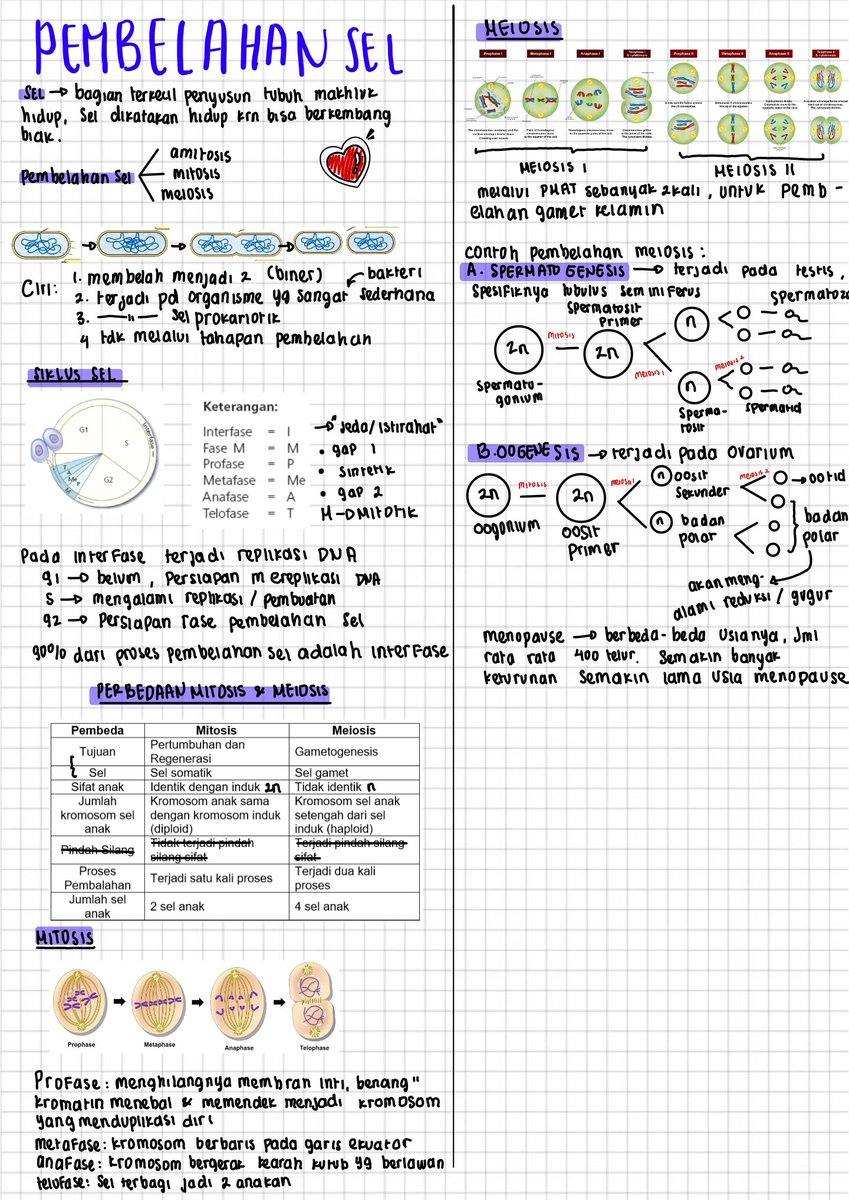 PEMBELAHAN SEL
SEL → bagian terkecil penyusun tubuh makhluk
hidup, Sel dikatakan hidup krn bisa berkembang
biak.
Pembelahan Sel
amitosis
mitosis
meiosis
Ciri:
1. membelah menjadi 2 (biner)
bakteri
2. terjadi pd organisme yg sangat sederhana
3. —〃— sel prokariotik
4 tdk melalui tahapan pembelahan
SIKLUS SEL
G1
S
G2
Interfase
T
A
Me
P
M
Keterangan:
Interfase = I
Fase M = M
Profase = P
Metafase = Me
Anafase = A
Telofase = T
→ "Jeda/istirahat"
• gap 1
• sintetik
• gap 2
M → Mitotik
Pada interfase terjadi replikasi DNA
g1 → belum, Persiapan mereplikasi DNA
S → mengalami replikasi / pembuatan
g2 → Persiapan fase pembelahan sel
90% dari proses pembelahan sel adalah interfase
PERBEDAAN MITOSIS & MEIOSIS
Pembeda Mitosis Meiosis
Tujuan Pertumbuhan dan Regenerasi Gametogenesis
Sel Sel somatik Sel gamet
Sifat anak Identik dengan induk 2n Tidak identik n
Jumlah kromosom sel anak Kromosom anak sama dengan kromosom induk (diploid) Kromosom sel anak setengah dari sel induk (haploid)
Pindah Silang Tidak terjadi pindah silang sifat Terjadi pindah silang sifat
Proses Pembalahan Terjadi satu kali proses Terjadi dua kali proses
Jumlah sel anak 2 sel anak 4 sel anak
MITOSIS
Prophase Metaphase Anaphase Telophase
Profase: menghilangnya membran inti, benang"
kromatin menebal & memendek menjadi kromosom
yang menduplikasi diri
metafase: kromosom berbaris pada garis ekuator
anafase: kromosom bergerak kearah kutub yg berlawan
telofase: Sel terbagi jadi 2 anakan
MEIOSIS
Prophase I Metaphase I Anaphase I Prophase II Metaphase II Anaphase II
MEIOSIS I
MEIOSIS II
melalui PMAT sebanyak 2kali, untuk pemb-
elahan gamet kelamin
contoh pembelahan meiosis:
A. SPERMATOGENESIS → terjadi pada testis,
Spesifiknya tubulus seminiferus
2n
Spermato-
gonium
mitosis
Spermatosit
primer
2n
meiosis 1
n
n
Sperma-
tosit
meiosis 2
spermatid
spermatozo
B. OOGENESIS → terjadi pada ovarium
2n
oogonium
mitosis
2n
oosit
primer
meiosis 1
n oosit
sekunder
n badan
polar
meiosis 2
→ ootid
badan
polar
akan meng-
alami reduksi / gugur
menopause → berbeda-beda usianya, Jml
rata rata 400 telur. Semakin banyak
keturunan Semakin lama usia menopause